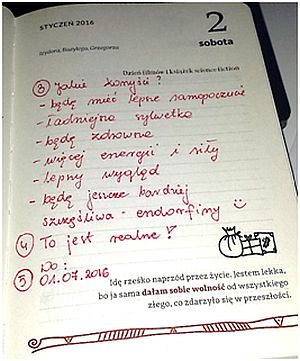 STYCZEŃ 2016
2
sobota
Izydora, Bazylego, Grzegorza
Dzień filmów i książek science fiction
③ Jakie korzyści?
- będę mieć lepsze samopoczucie
- ładniejsza sylwetka
- będę zdrowsza
- więcej energii i siły
- lepszy wygląd
- będę jeszcze bardziej
szczęśliwa - endorfiny
④ To jest realne!
⑤ Do:
01.07.2016
Idę rześko naprzód przez życie. Jestem lekka,
bo ja sama dałam sobie wolność od wszystkiego
złego, co zdarzyło się w przeszłości.